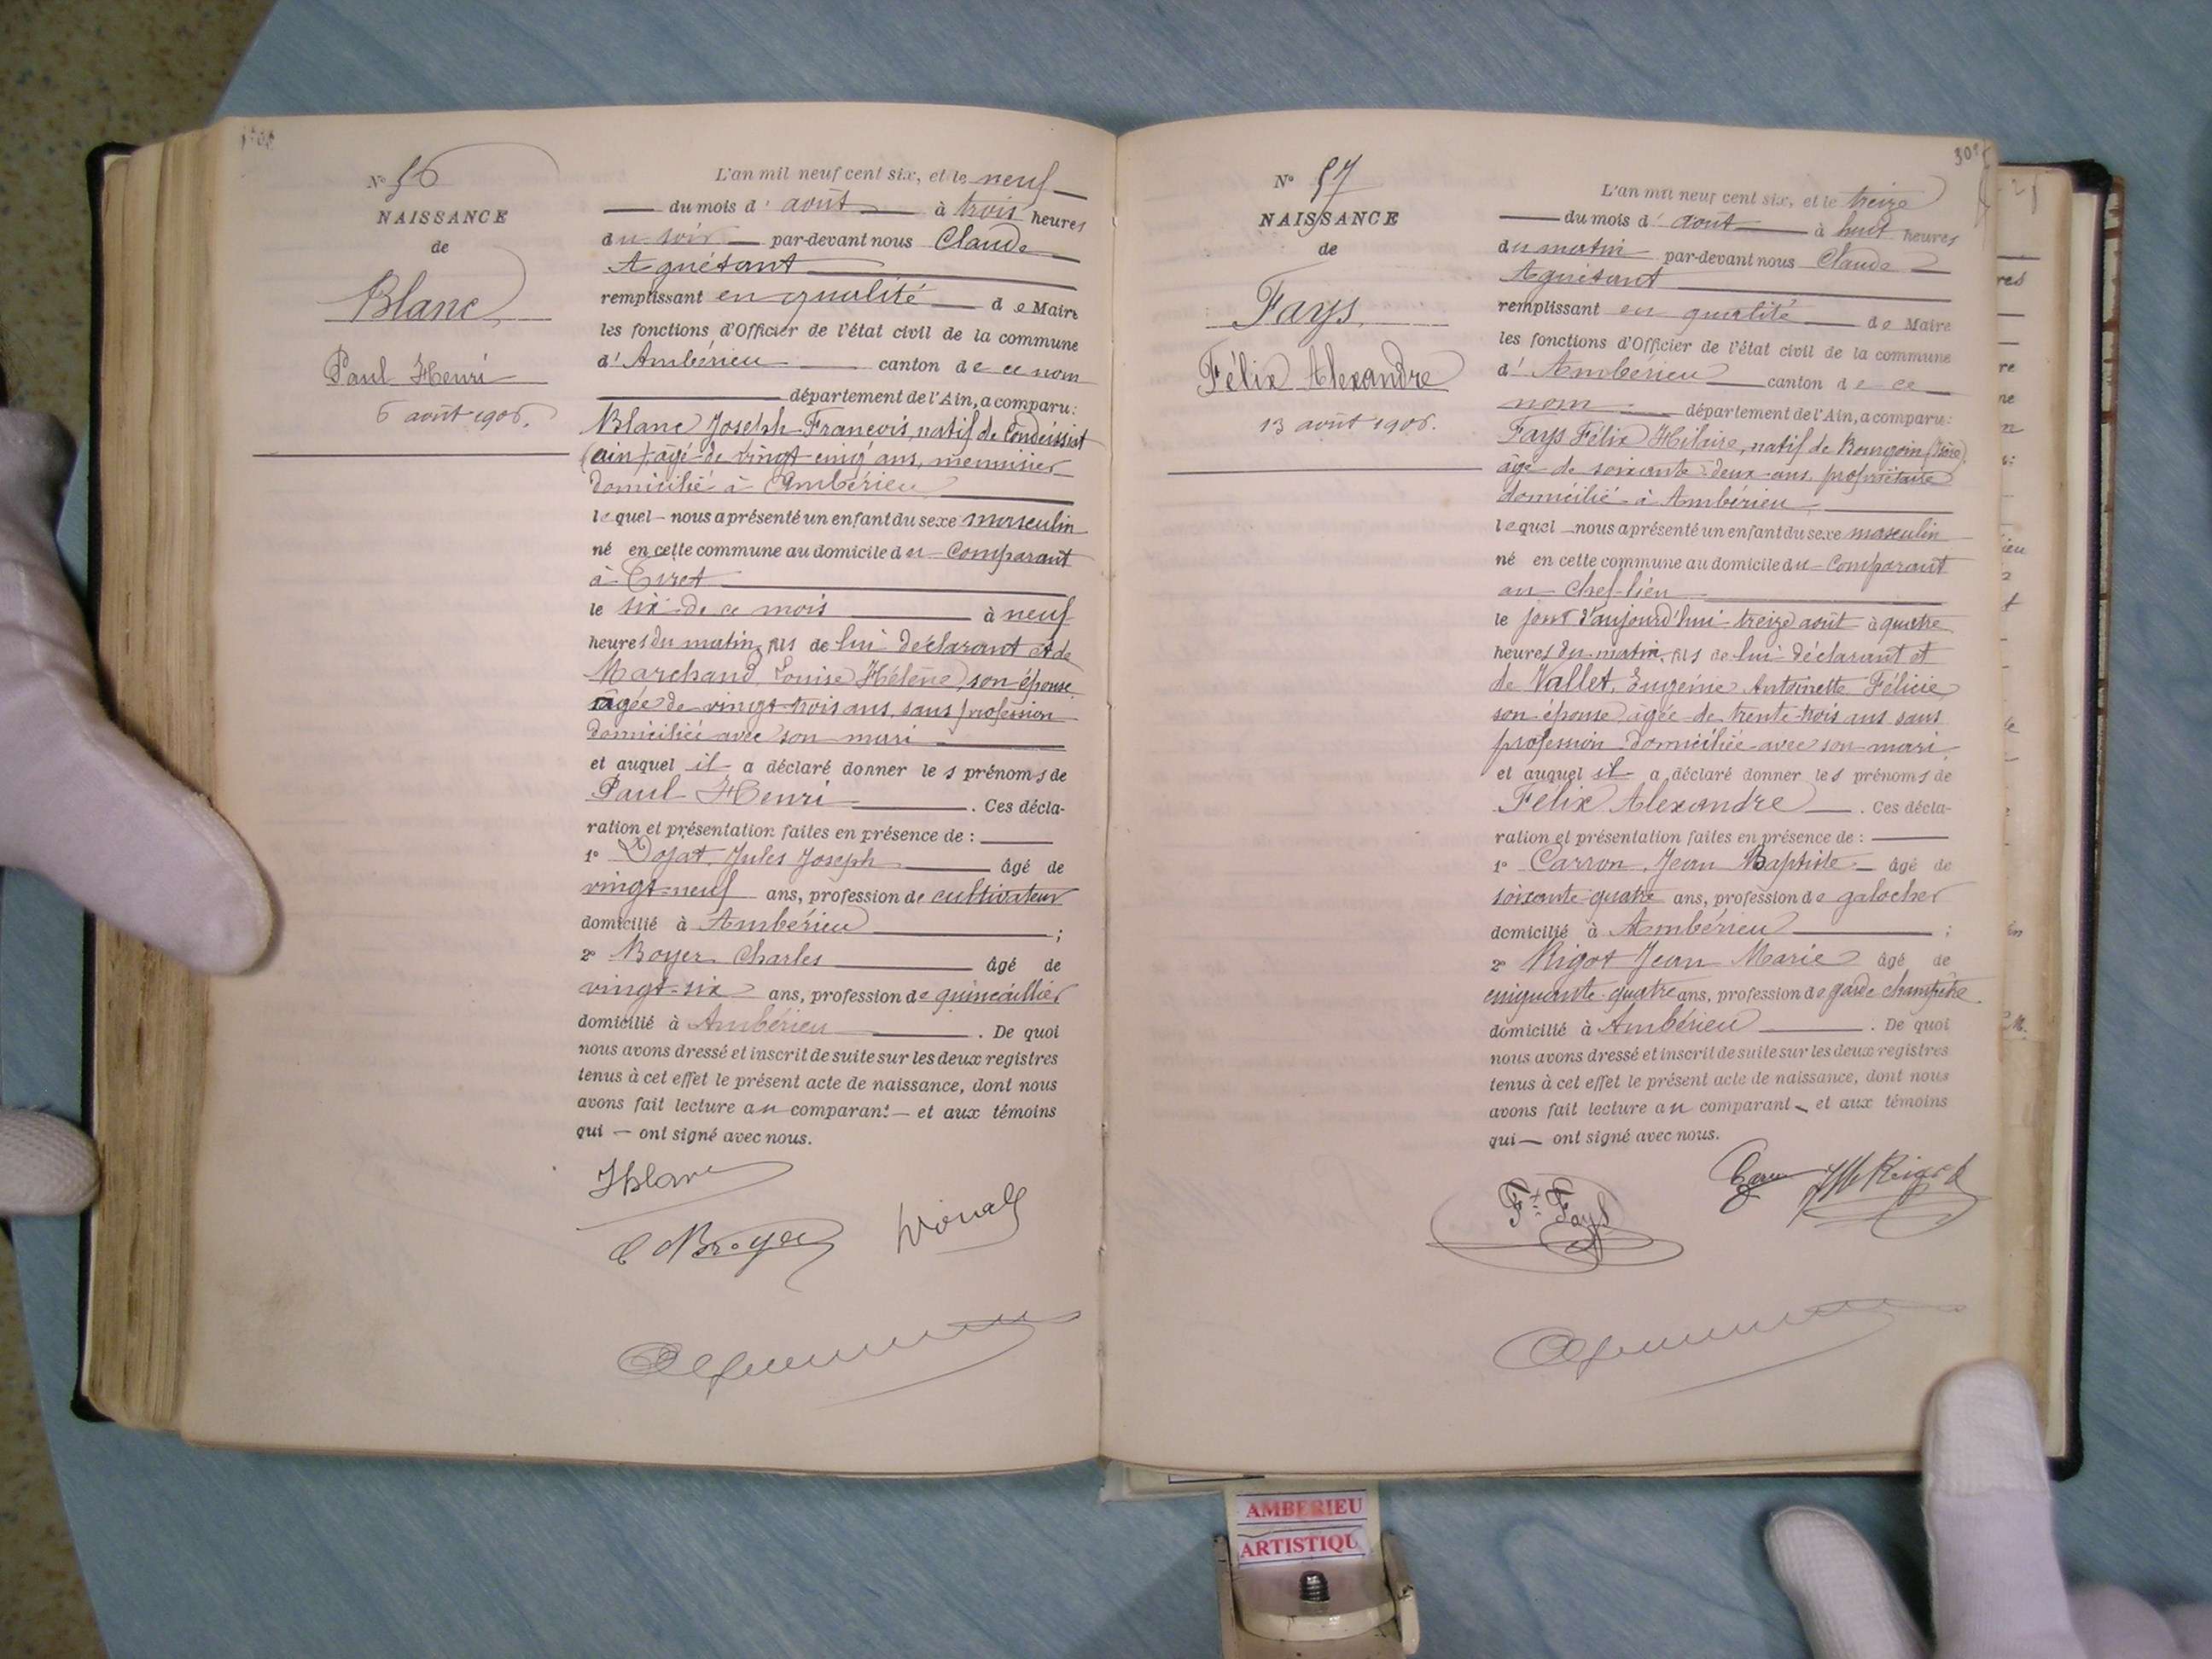 N° 56
NAISSANCE
de
Blanc
Paul Henri
6 août 1906.
L'an mil neuf cent six, et le neuf
du mois d'août à trois heures
du soir par-devant nous Claude
Aguétant
remplissant en qualité de Maire
les fonctions d'Officier de l'état civil de la commune
d'Ambérieu canton de ce nom
département de l'Ain, a comparu:
Blanc Joseph François, natif de Condeissiat
(ain) âgé de vingt-cinq ans, menuisier
domicilié à Ambérieu
lequel nous a présenté un enfant du sexe masculin
né en cette commune au domicile du Comparant
à Tiret
le six de ce mois à neuf
heures du matin, fils de lui déclarant et de
Marchand, Louise Hélène, son épouse
âgée de vingt-trois ans, sans profession
domiciliée avec son mari
et auquel il a déclaré donner les prénoms de
Paul Henri . Ces décla-
ration et présentation faites en présence de :
1° Dojat, Jules Joseph âgé de
vingt-neuf ans, profession de cultivateur
domicilié à Ambérieu ;
2° Boyer Charles âgé de
vingt-six ans, profession de quincaillier
domicilié à Ambérieu . De quoi
nous avons dressé et inscrit de suite sur les deux registres
tenus à cet effet le présent acte de naissance, dont nous
avons fait lecture au comparant et aux témoins
qui ont signé avec nous.
JBlanc
C Boyer
N° 57
NAISSANCE
de
Fays
Félix Alexandre
13 août 1906.
L'an mil neuf cent six, et le treize
du mois d'août à huit heures
du matin par-devant nous Claude
Aguétant
remplissant en qualité de Maire
les fonctions d'Officier de l'état civil de la commune
d'Ambérieu canton de ce
nom département de l'Ain, a comparu:
Fays Félix Hilaire, natif de Bourgoin (Isère)
âgé de soixante-deux ans, propriétaire
domicilié à Ambérieu
lequel nous a présenté un enfant du sexe masculin
né en cette commune au domicile du Comparant
au Chef-lieu
le jour d'aujourd'hui treize août à quatre
heures du matin, fils de lui déclarant et
de Vallet, Eugénie Antoinette Félicie
son épouse âgée de trente-trois ans sans
profession domiciliée avec son mari
et auquel il a déclaré donner les prénoms de
Félix Alexandre . Ces décla-
ration et présentation faites en présence de :
1° Carron, Jean Baptiste âgé de
soixante-quatre ans, profession de galocher
domicilié à Ambérieu ;
2° Rigot Jean Marie âgé de
cinquante-quatre ans, profession de garde champêtre
domicilié à Ambérieu . De quoi
nous avons dressé et inscrit de suite sur les deux registres
tenus à cet effet le présent acte de naissance, dont nous
avons fait lecture au comparant et aux témoins
qui ont signé avec nous.
Fx Fays
AMBERIEU
ARTISTIQU